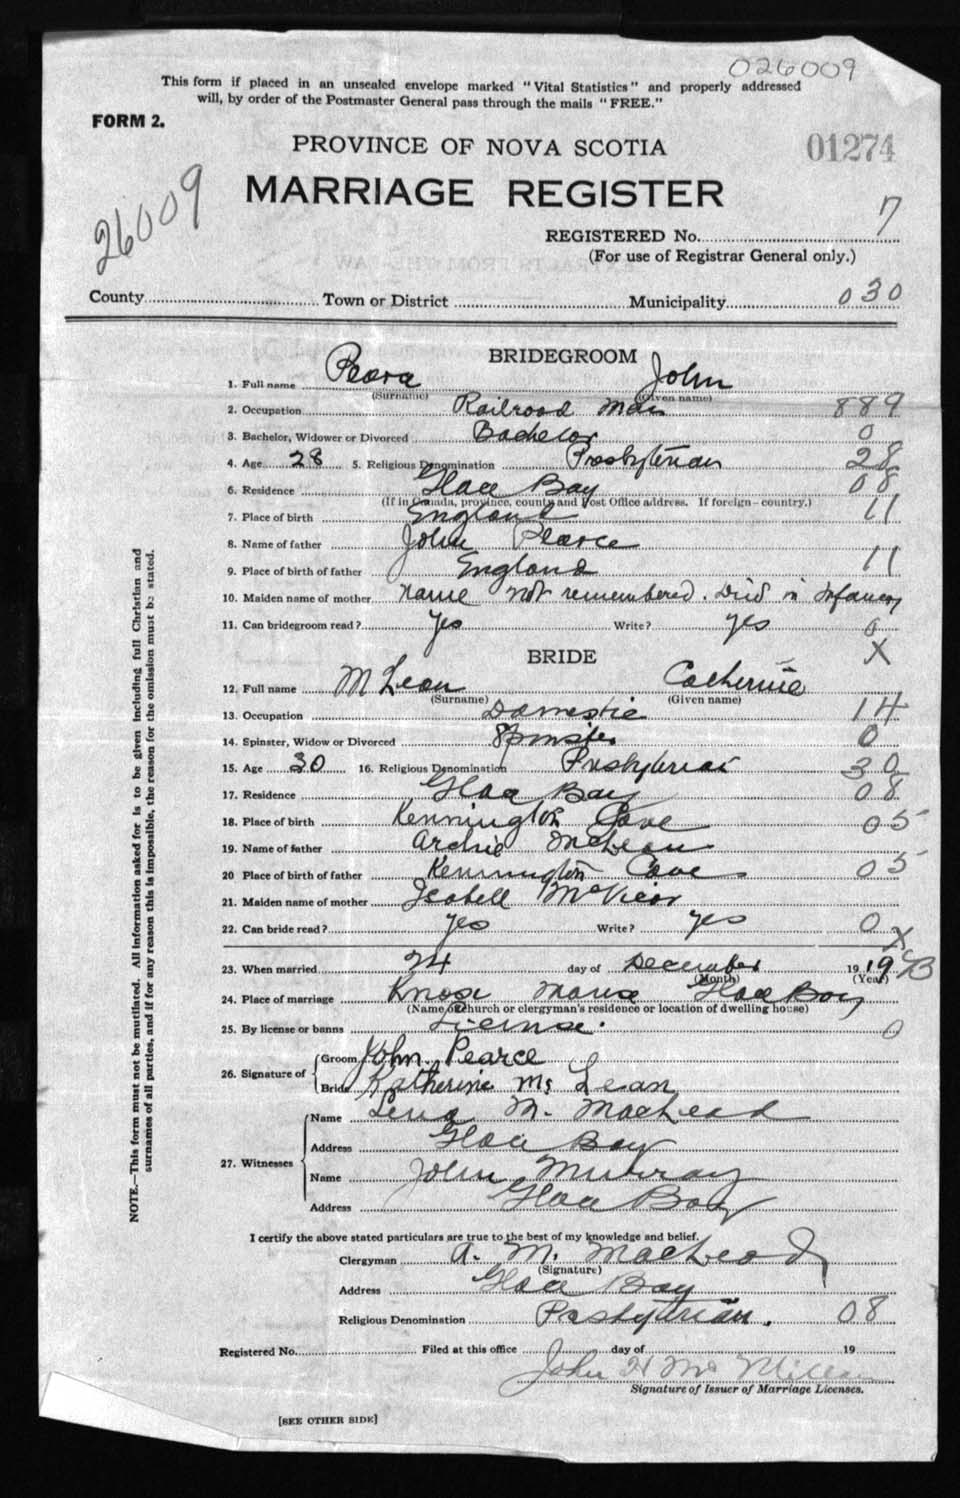 026009
This form if placed in an unsealed envelope marked "Vital Statistics" and properly addressed
will, by order of the Postmaster General pass through the mails "FREE."
FORM 2.
PROVINCE OF NOVA SCOTIA
01274
MARRIAGE REGISTER
26009
REGISTERED No. 7
(For use of Registrar General only.)
County Town or District Municipality 030
BRIDEGROOM
1. Full name John
(Surname) (Given name)
2. Occupation Railroad Man 889
3. Bachelor, Widower or Divorced Bachelor 0
4. Age 28 5. Religious Denomination Presbyterian 28
6. Residence Glace Bay 08
(If in Canada, province, county and Post Office address. If foreign—country.)
7. Place of birth England 11
8. Name of father John Pearce
9. Place of birth of father England 11
10. Maiden name of mother Name not remembered. Died in Infancy
11. Can bridegroom read? Yes Write? yes 0
X
BRIDE
12. Full name McLean Catherine
(Surname) (Given name)
13. Occupation Domestic 14
14. Spinster, Widow or Divorced Spinster 0
15. Age 30 16. Religious Denomination Presbyterian 30
17. Residence Glace Bay 08
18. Place of birth Kennington Cove 05
19. Name of father Archie McLean
20 Place of birth of father Kennington Cove 05
21. Maiden name of mother Isabell McVicar
22. Can bride read? yes Write? yes 0
X
23. When married 24 day of December 1919
(Month) (Year)
24. Place of marriage Knox Manse Glace Bay
(Name of church or clergyman's residence or location of dwelling house)
25. By license or banns License. 0
26. Signature of Groom John Pearce
Bride Katherine Mc Lean
27. Witnesses Name Lena M. MacLeod
Address Glace Bay
Name John Murray
Address Glace Bay
I certify the above stated particulars are true to the best of my knowledge and belief.
Clergyman A. M. MacLeod
(Signature)
Address Glace Bay
Religious Denomination Presbyterian. 08
Registered No. Filed at this office day of 19
John H Mc Millan
Signature of Issuer of Marriage Licenses.
[SEE OTHER SIDE]
NOTE.—This form must not be mutilated. All information asked for is to be given including full Christian and
surnames of all parties, and if for any reason this is impossible, the reason for the omission must be stated.